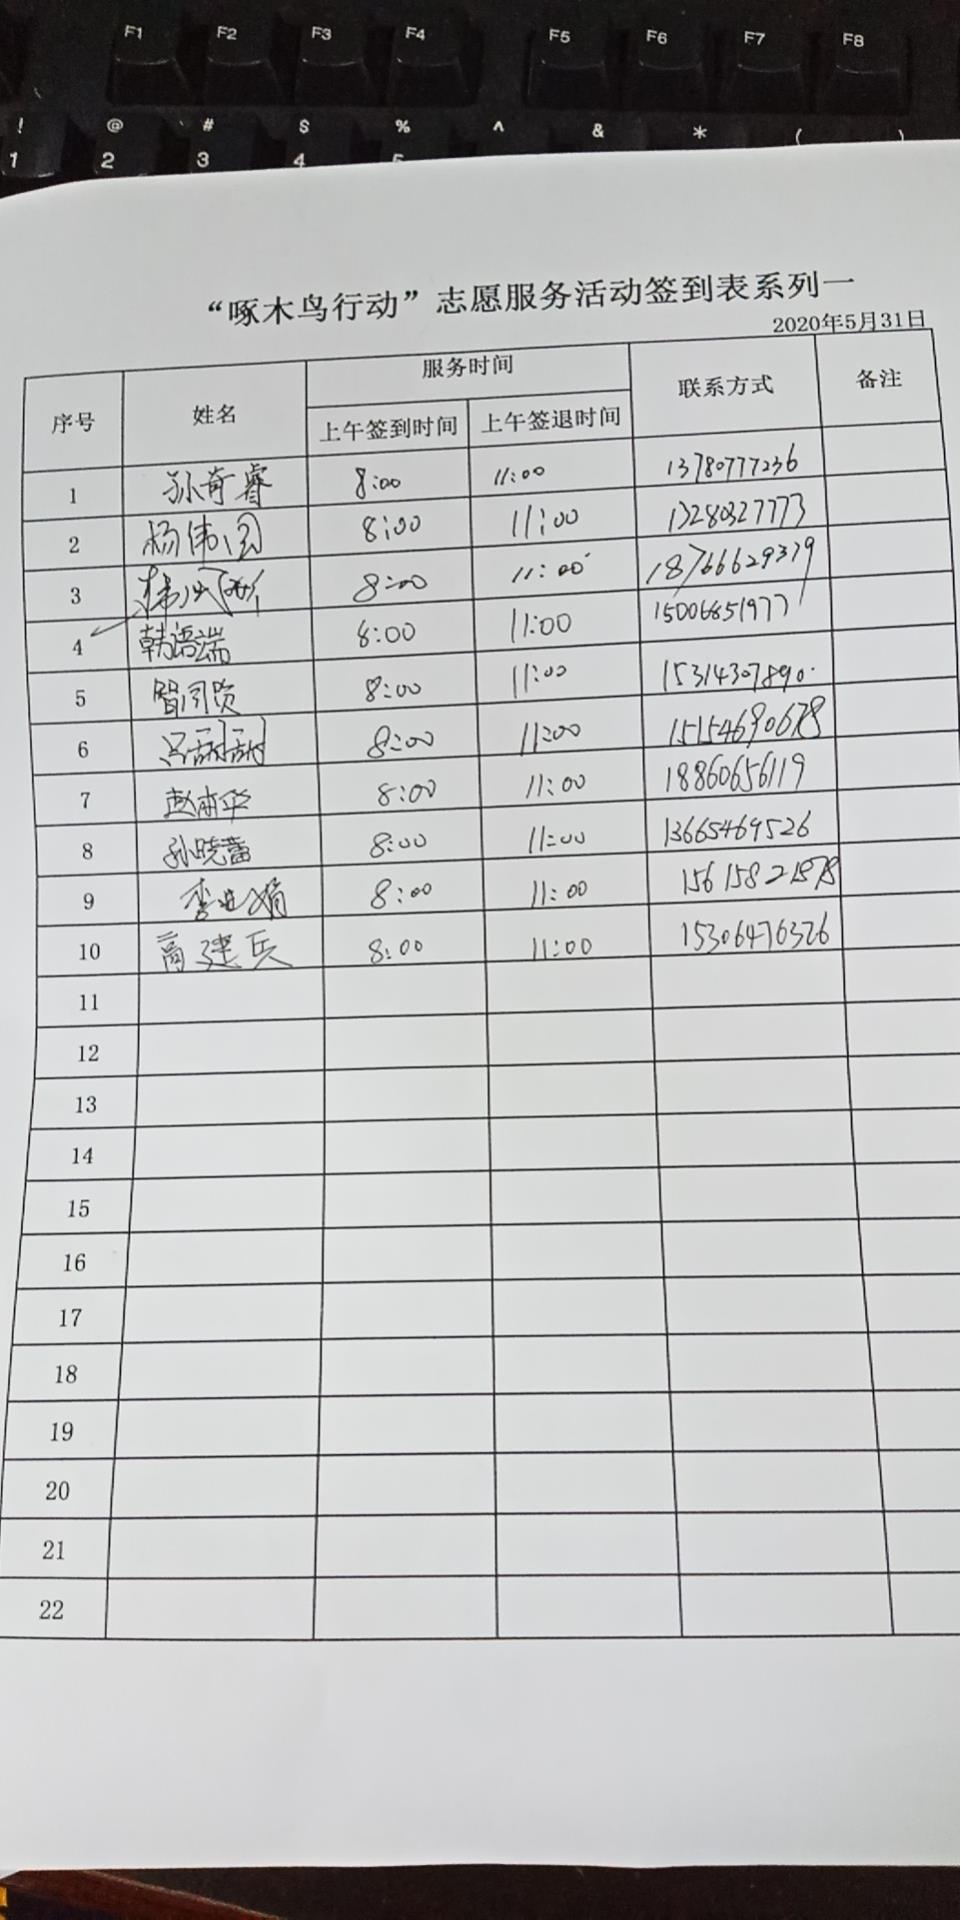 F1 F2 F3 F4 F5 F6 F7 F8
! @ # $ % ^ & * ( )
1 2 3 4 5
“啄木鸟行动”志愿服务活动签到表系列一
2020年5月31日
序号 姓名 服务时间 联系方式 备注
上午签到时间 上午签退时间
1 孙奇睿 8:00 11:00 13780777236
2 杨伟国 8:00 11:00 13280327773
3 8:00 11:00 18766629379
4 韩语端 8:00 11:00 15006851977
5 8:00 11:00 15314307890
6 吕甜甜 8:00 11:00 15154690678
7 赵甫华 8:00 11:00 18860656119
8 孙晓蕾 8:00 11:00 13665469526
9 李亚娟 8:00 11:00 15615821878
10 高建兵 8:00 11:00 15306476326
11
12
13
14
15
16
17
18
19
20
21
22